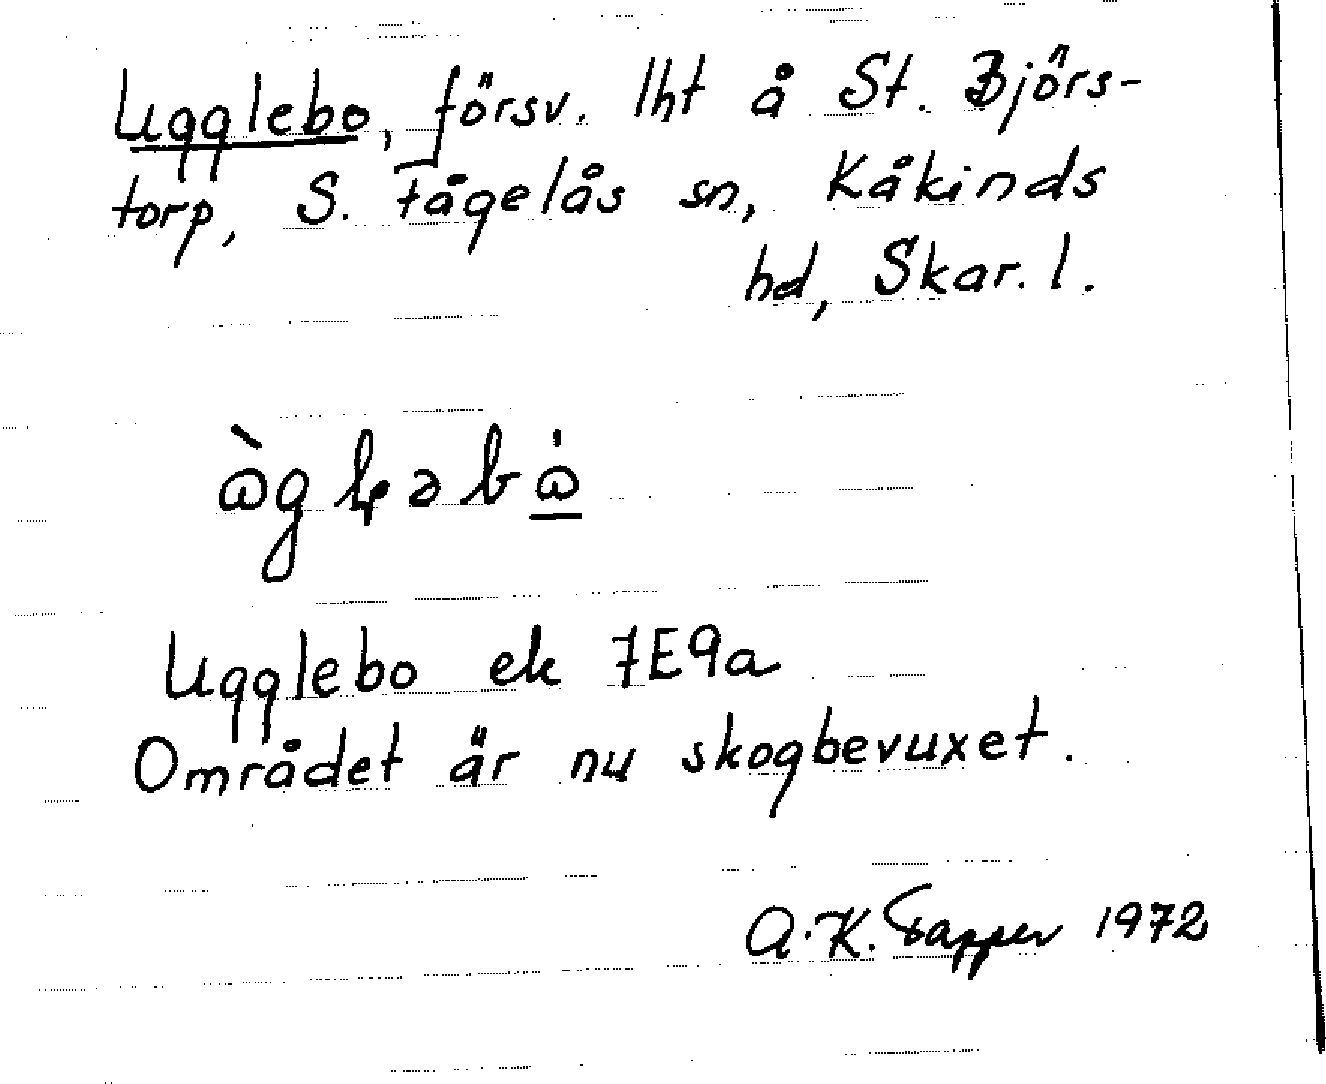 Ugglebo, försv. lht å St. Björs-
torp, S. Fågelås sn, Kåkinds
hd, Skar. l.
Ugglebo ek 7E9a
Området är nu skogbevuxet.
A.K. Tapper 1972